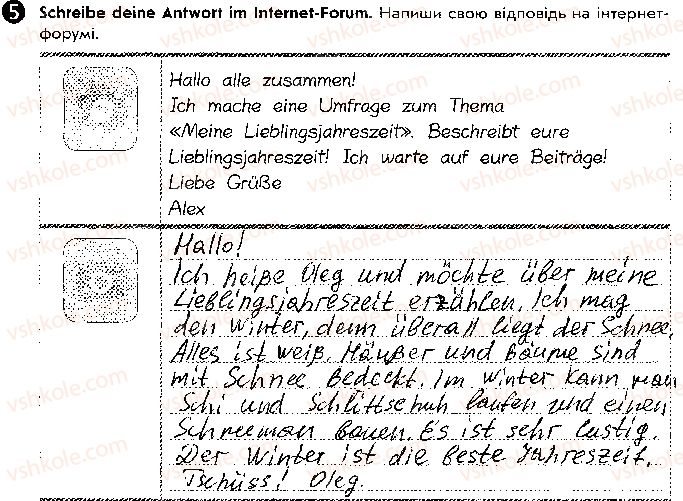 5 Schreibe deine Antwort im Internet-Forum. Напиши свою відповідь на інтернет-
форумі.
Hallo alle zusammen!
Ich mache eine Umfrage zum Thema
«Meine Lieblingsjahreszeit». Beschreibt eure
Lieblingsjahreszeit! Ich warte auf eure Beiträge!
Liebe Grüße
Alex
Hallo!
Ich heiße Oleg und möchte über meine
Lieblingsjahreszeit erzählen. Ich mag
den Winter, denn überall liegt der Schnee.
Alles ist weiß. Häußer und Bäume sind
mit Schnee bedeckt. Im Winter kann man
Schi und Schlittschuh laufen und einen
Schneeman bauen. Es ist sehr lustig.
Der Winter ist die beste Jahreszeit.
Tschüss! Oleg.